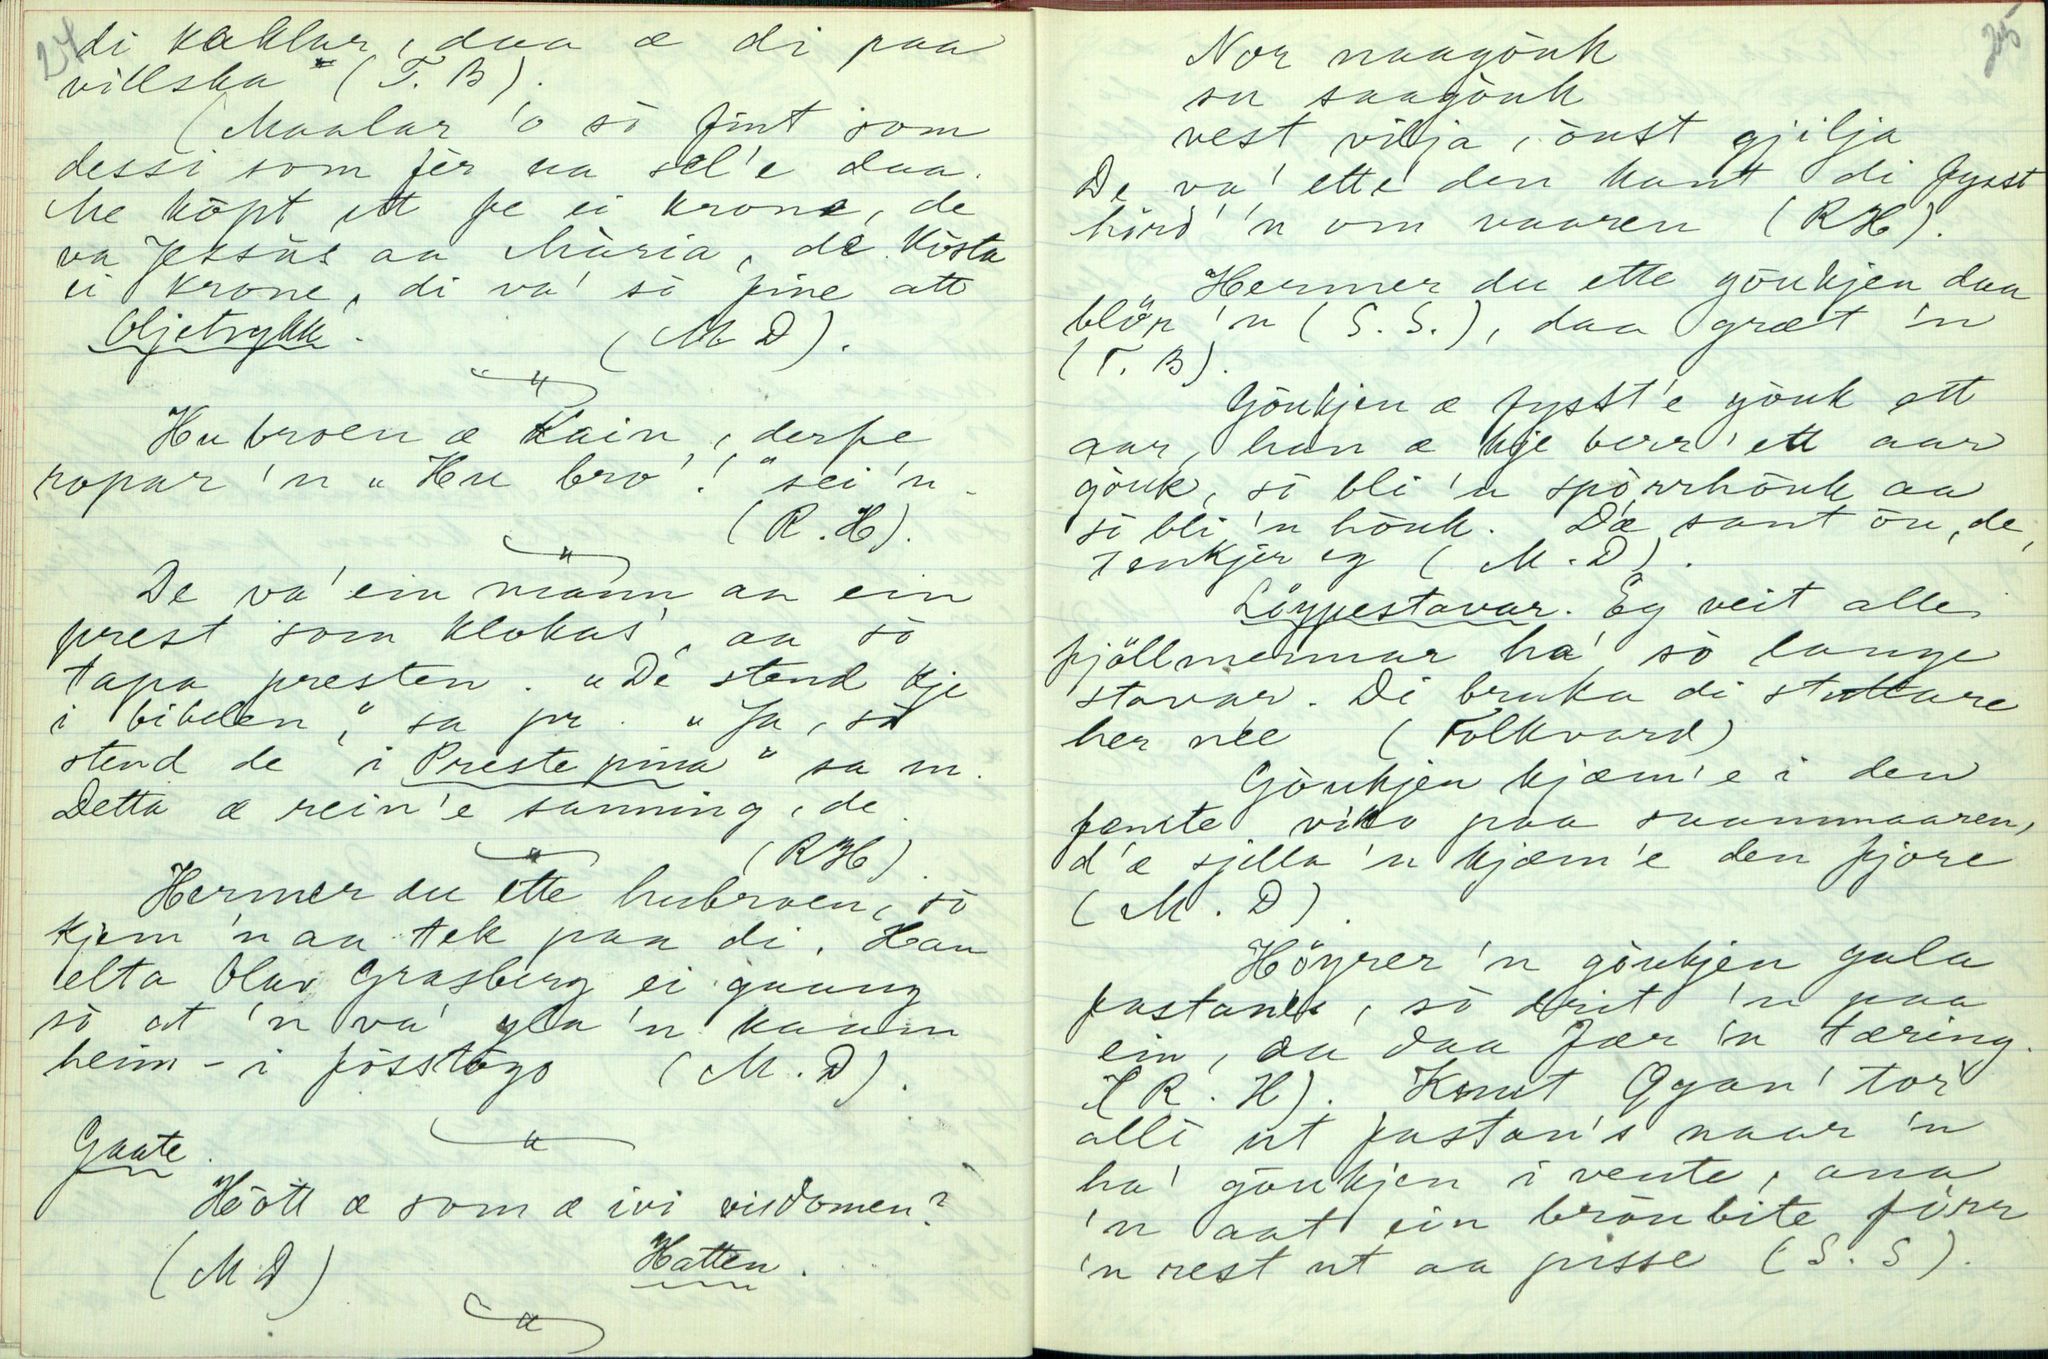 24
di kaklar, daa æ di paa
villska" (T. B).
(Maalar 'o sò fint som
dessi som fèr aa sel'e daa.
Me kòpt itt fe ei krone, de
va Jessus aa Maria, de kòsta
ei krone, di va' sò fine att
Oljetrykk. (M D).
Hubroen æ Kain, derfe
ropar 'n „Hu bro'!" sei 'n.
(R. H).
De va' ein mann aa ein
prest som klokas', aa sò
tapa presten. „De stend kje
i bibelen," sa pr. „Ja, sò
stend de i Prestepina" sa m.
Detta æ rein'e sanning, de.
(RH).
Hermer du ette hubroen, sò
kjem 'n aa tek paa di. Han
elta Olav Grasberg ei gaang
sò at 'n va' gla 'n kaam
heim - i fòsstògo (M. D).
Gaate.
Hòtt æ som æ ivi visdomen?
(M D) Hatten.
25
Nor naagòuk
su saagòuk
vest vilja, òust gjilja
De va' ette den kant di fysst
hörd' 'n om vaaren (RH).
Hermer du ette gòukjen daa
blör 'n (S. S.), daa græt 'n
(T. B).
Gòukjen æ fysst'e gòuk ett
aar, han æ kje berr' ett aar
gòuk, sò bli 'n spòrrhòuk aa
sò bli 'n hòuk. Dæ sant òu, de,
tenkjer eg (M. D).
Löypestavar. Eg veit alle
fjöllmennar ha' sò lange
stavar. Di bruka di stuttare
her nee (Folkvard)
Gòukjen kjæm'e i den
femte viko paa suammaaren,
d'æ sjella 'n kjæm'e den fjore
(M. D).
Höyrer 'n gòukjen gala
fastan's, sò drit 'n paa
ein, aa daa fær 'n tæring.
(R. H). Knut Qgan' tor
alli ut fastan's naar 'n
ha' gòukjen i vente, ana
'n aat ein bròubite förr
'n rest ut aa pisse (S. S).